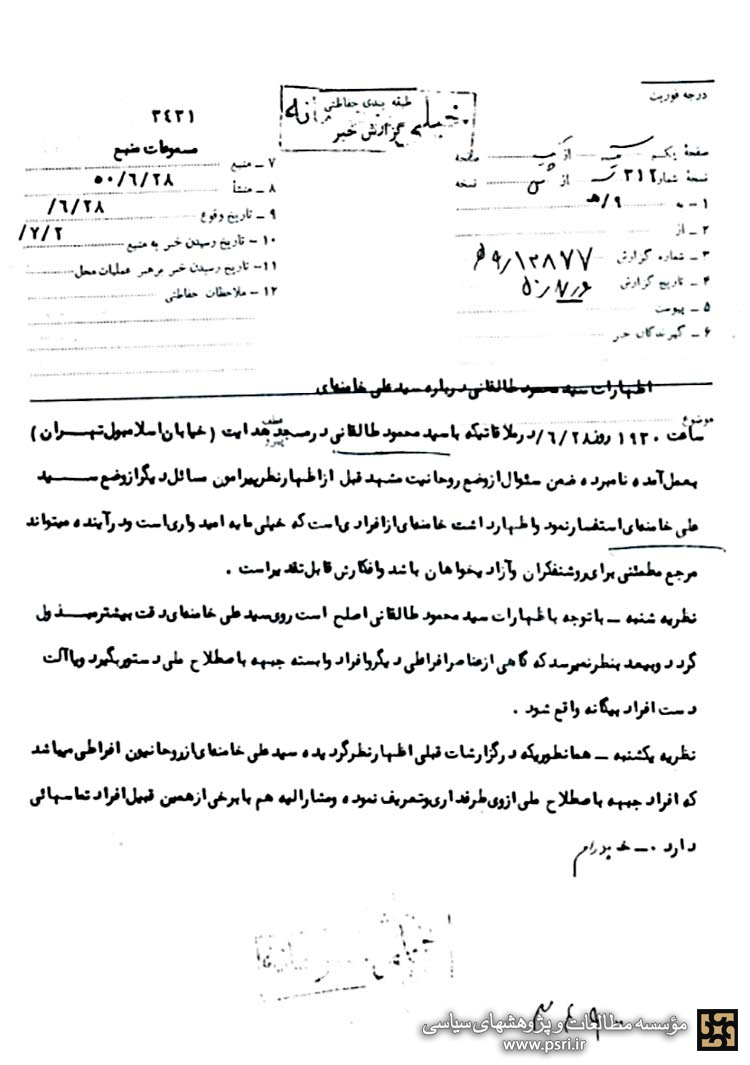 درجه فوریت
طبقه بندی حفاظتی
خیلی محرمانه
گزارش خبر
۳۴۳۱
صفحهٔ یکم از یک صفحه
نسخهٔ شمارهٔ ۳۱۲ از نسخه
۱ – به ۹/ﻫ
۲ – از
۳ – شماره گزارش ۹/۱۳۸۷۷ﻫ
۴ – تاریخ گزارش ۵۰/۷/۶
۵ – پیوست
۶ – گیرندگان خبر
۷ – منبع مسموعات منبع
۸ – منشأ ۵۰/۶/۲۸
۹ – تاریخ وقوع /۶/۲۸
۱۰ – تاریخ رسیدن خبر به منبع /۷/۲
۱۱ – تاریخ رسیدن خبر برهبر عملیات محل
۱۲ – ملاحظات حفاظتی
موضوع اظهارات سید محمود طالقانی درباره سید علی خامنه‌ای
ساعت ۱۹۳۰ روز ۶/۲۸/ در ملاقاتیکه با سید محمود طالقانی در مسجد هدایت (خیابان اسلامبول تهران)
بعمل آمده نامبرده ضمن سئوال از وضع روحانیت مشهد قبل از اظهار نظر پیرامون مسائل دیگر از وضع سید
علی خامنه‌ای استفسار نمود و اظهار داشت خامنه‌ای از افرادی است که خیلی مایه امیدواری است و در آینده میتواند
مرجع مطمئنی برای روشنفکران و آزادیخواهان باشد و افکارش قابل تقدیر است .
نظریه شنبه – با توجه با ظهارات سید محمود طالقانی اصلح است روی سید علی خامنه‌ای دقت بیشتر مبذول
گردد و بعید بنظر نمیرسد که گاهی از عناصر افراطی دیگر و افراد وابسته جبهه باصطلاح ملی دستور بگیرد و یا آلت
دست افراد بیگانه واقع شود .
نظریه یکشنبه – همانطوریکه در گزارشات قبلی اظهار نظر گردیده سید علی خامنه‌ای از روحانیون افراطی میباشد
که افراد جبهه باصطلاح ملی از وی طرفداری و تعریف نموده و مشارالیه هم با برخی از همین قبیل افراد تماسهائی
دارد .
مؤسسه مطالعات و پژوهشهای سیاسی
www.psri.ir